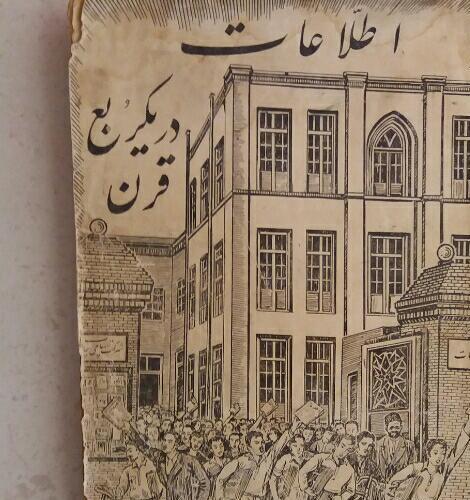 اطلّاعات
در یک رُبع
قرن